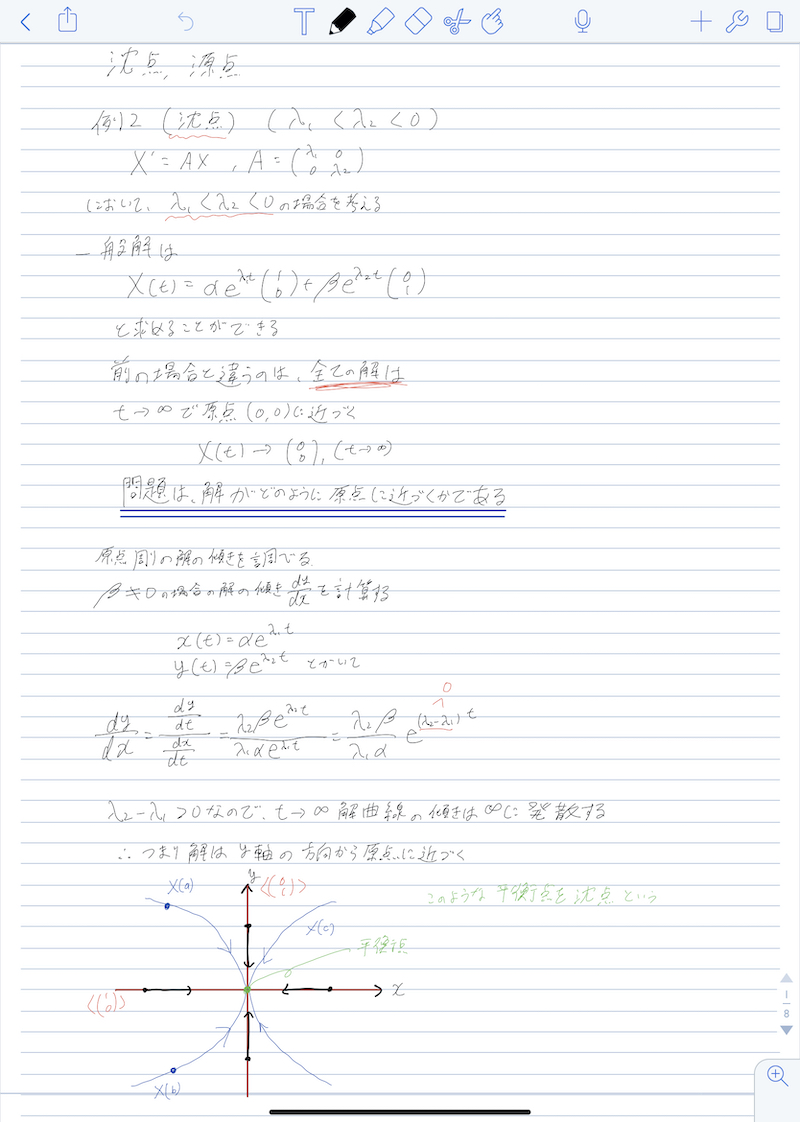 沈点, 源点
例2 (沈点) (λ₁ < λ₂ < 0)
X' = AX , A = (λ₁ 0 0 λ₂)
において、λ₁ < λ₂ < 0 の場合を考える
一般解は
X(t) = αe^{λ₁t} (1 0) + βe^{λ₂t} (0 1)
と求めることができる
前の場合と違うのは、全ての解は
t → ∞ で原点 (0,0) に近づく
X(t) → (0 0), (t→∞)
問題は、解がどのように原点に近づくかである
原点周りの解の傾きを調べる
β ≠ 0 の場合の解の傾き dy/dx を計算する
x(t) = αe^{λ₁t}
y(t) = βe^{λ₂t} とかいて
0
dy/dx = (dy/dt)/(dx/dt) = λ₂βe^{λ₂t}/λ₁αe^{λ₁t} = λ₂β/λ₁α e^{(λ₂-λ₁)t}
λ₂-λ₁ > 0 なので、t → ∞ 解曲線の傾きは ∞ に発散する
∴ つまり解は y軸の方向から原点に近づく
y
X(a)
<(0 1)>
このような 平衡点を 沈点 という
X(c)
平衡点
x
<(1 0)>
X(b)
1
8